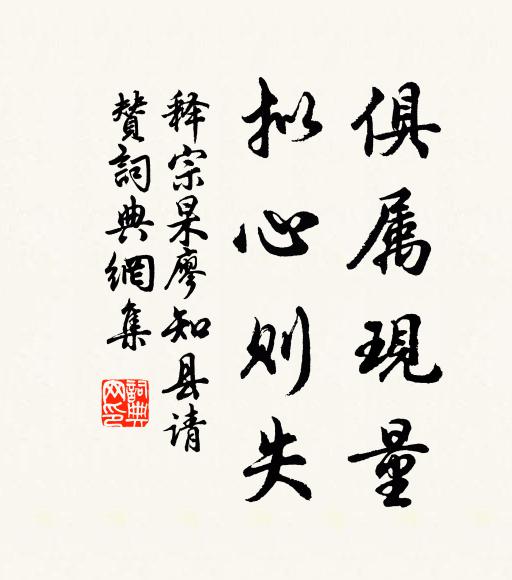 俱属現量
拟心则失
释宗杲廖知县请
賛詞典網集
詞典网印